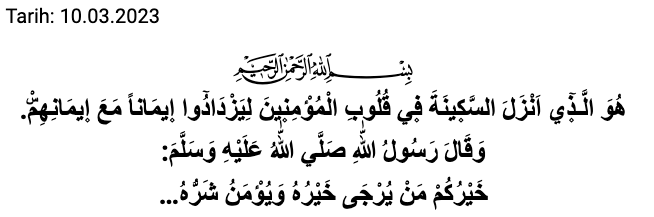 Tarih: 10.03.2023
بِسْمِ اللهِ الرَّحْمٰنِ الرَّحِيمِ
هُوَ الَّذ۪ٓي اَنْزَلَ السَّك۪ينَةَ ف۪ي قُلُوبِ الْمُؤْمِن۪ينَ لِيَزْدَادُٓوا ا۪يمَاناً مَعَ ا۪يمَانِهِمْۜ.
وَقَالَ رَسُولُ اللّٰهِ صَلَّي اللّٰهُ عَلَيْهِ وَسَلَّمَ:
خَيْرُكُمْ مَنْ يُرْجَى خَيْرُهُ وَيُؤْمَنُ شَرُّهُ...